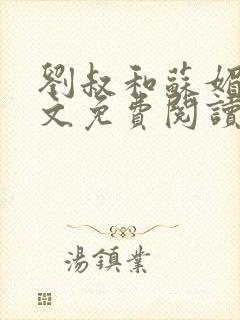 劉叔和蘇媚
文免費閱讀
湯鎮業